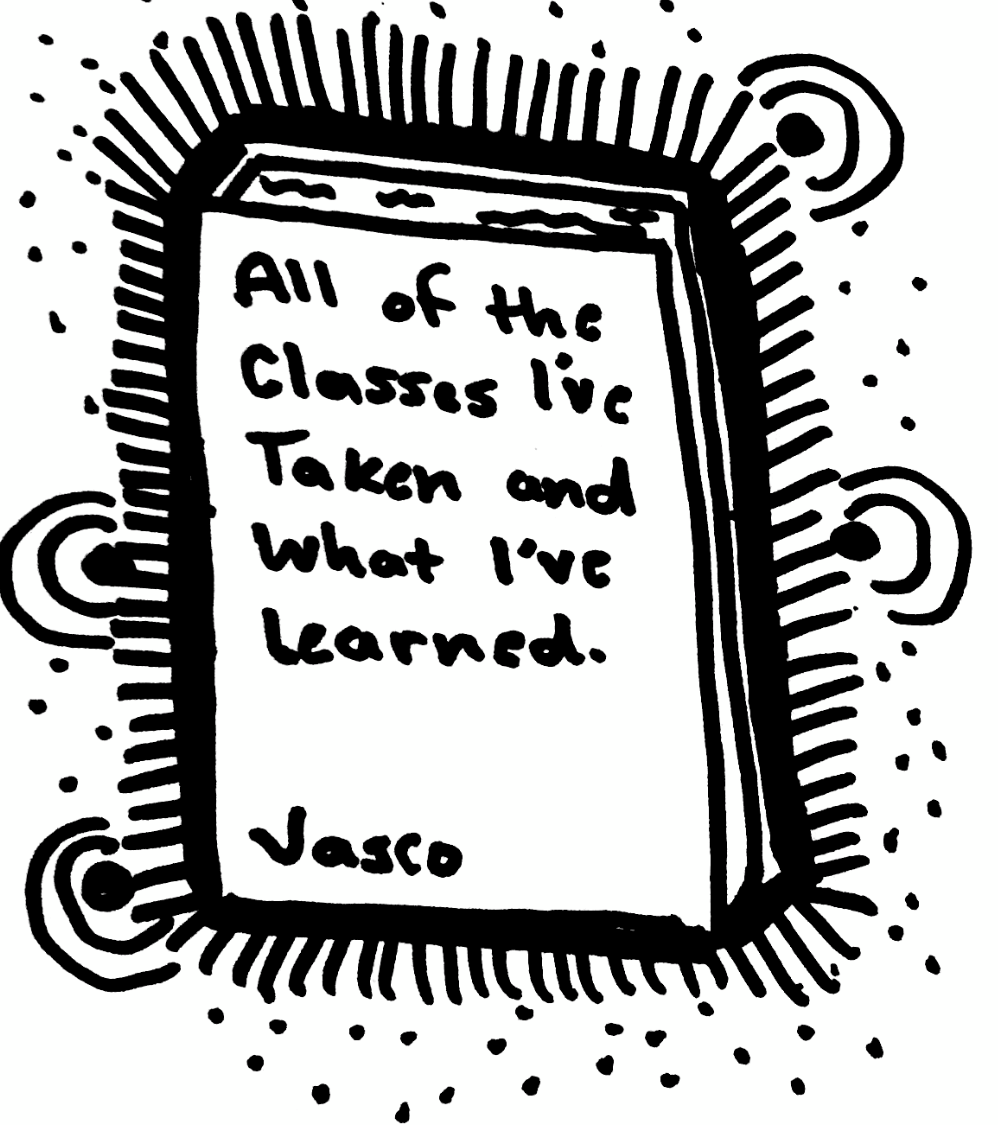 All of the
Classes I've
Taken and
What I've
Learned.
Vasco